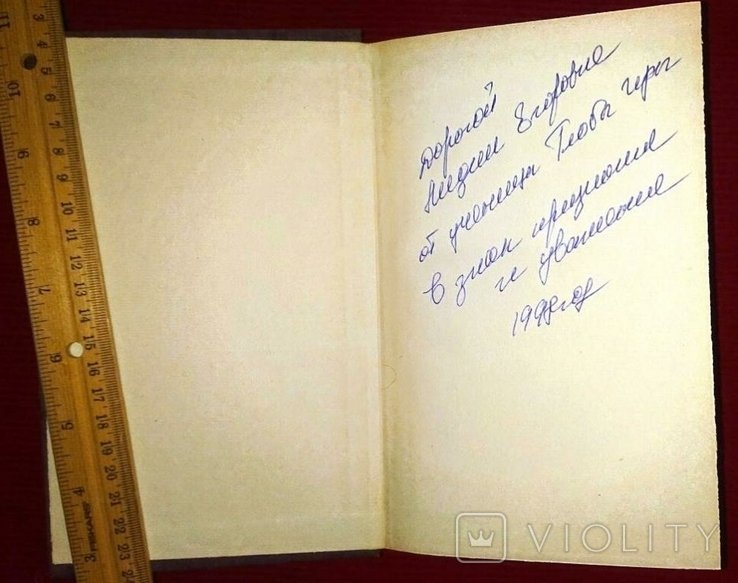 Дорогой
Лидии Егоровне
от ученицы Глобы Иры
в знак признания
и уважения
1998 год
VIOLITY
11
10
9
8
7
6
5
4
3
FISKARS
3
4
5
6
7
8
9
10
11
12
13
14
15
16
17
18
19
20
21
22
23
24